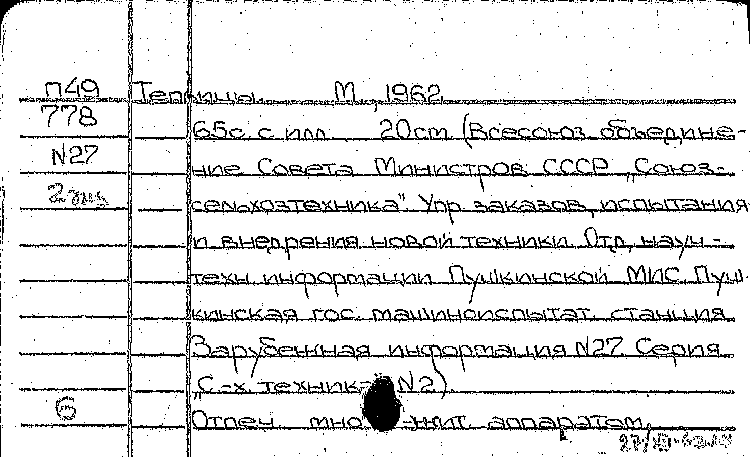 П49 Теплицы. М., 1962
778 65с. с илл. 20см (Всесоюз. объедине-
N27 ние Совета Министров СССР „Союз-
2 экз сельхозтехника". Упр. заказов, испытания
и внедрения новой техники. Отд. науч.-
техн. информации Пушкинской МИС. Пуш-
кинская гос. машиноиспытат. станция.
Зарубежная информация N27. Серия
„С.-х. техника N2).
Б Отпеч. множит. аппаратом.